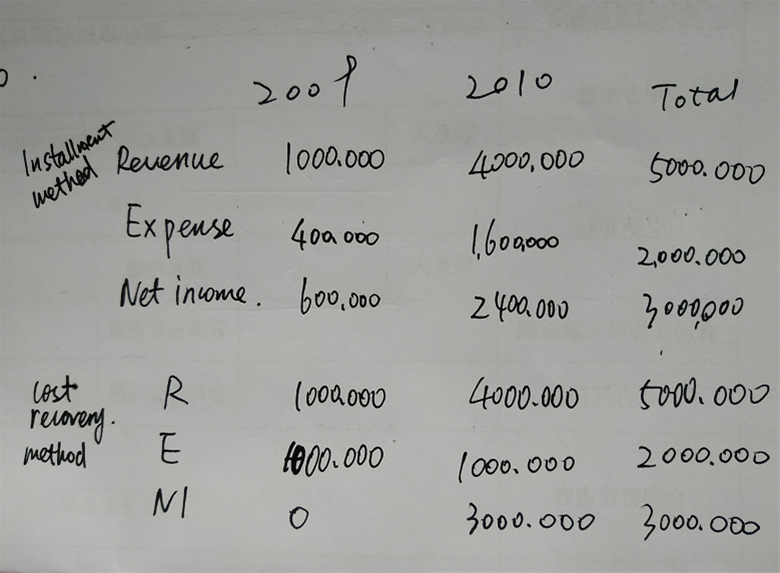 0.
2009 2010 Total
Installment method Revenue 1000.000 4000,000 5000.000
Expense 400.000 1,600,000 2,000.000
Net income. 600,000 2400.000 3000,000
cost recovery. method R 1000.000 4000.000 5000.000
E 1000.000 1000.000 2000.000
NI 0 3000.000 3000.000